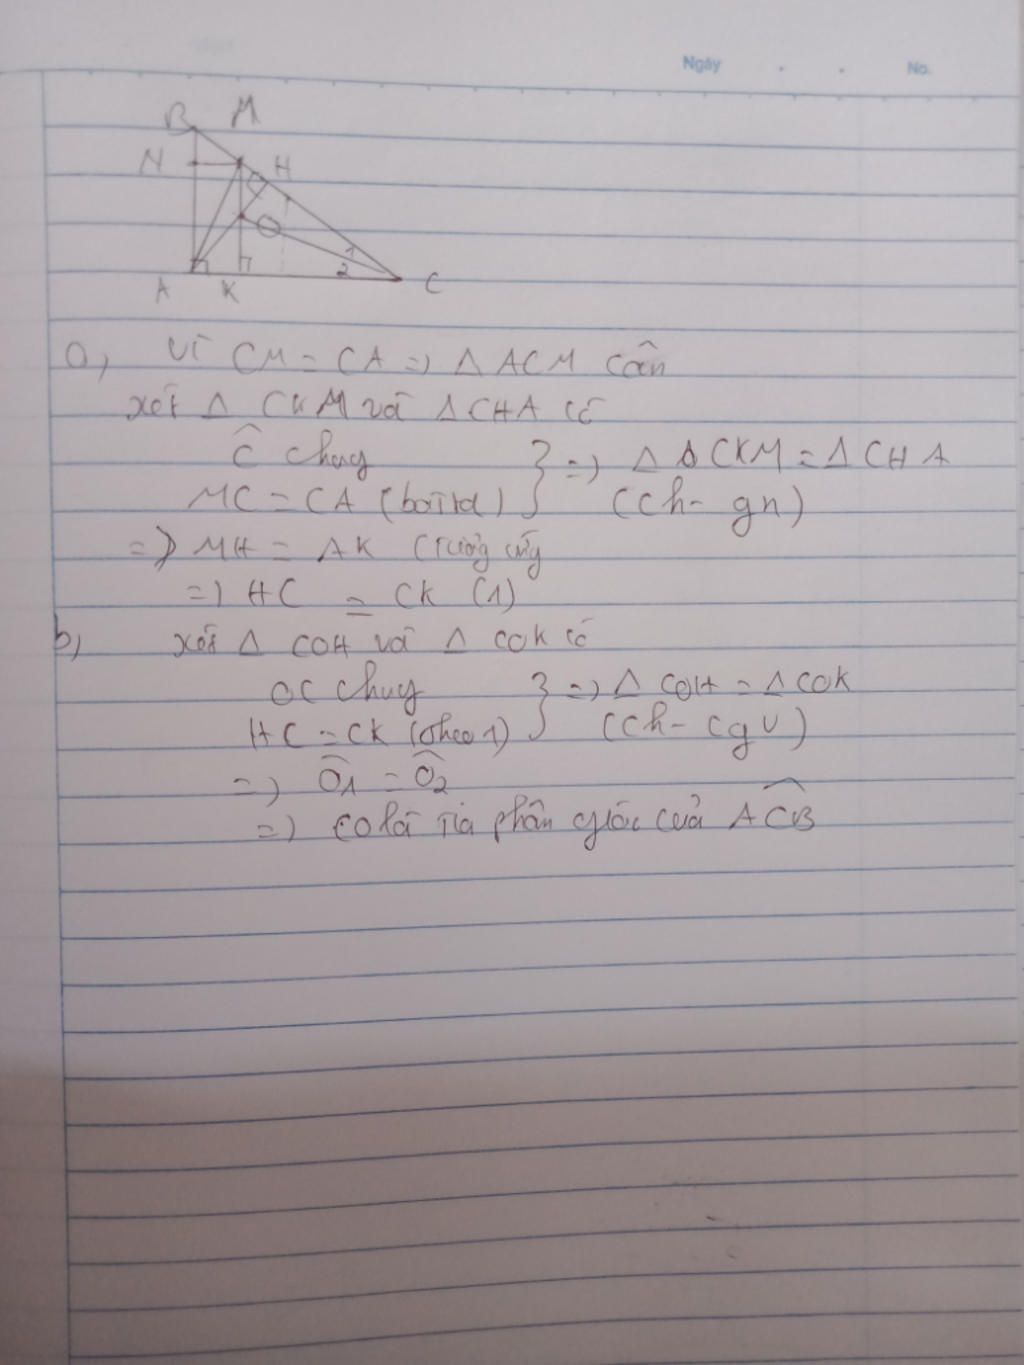 Ngày . . No.
B M
N H
O 1
2
A K C
a, Vì CM = CA => Δ ACM cân
xét Δ CKM và Δ CHA có
Ĉ chung
MC = CA (bài ra) } => Δ CKM = Δ CHA
(ch - gn)
=> MH = AK (Tương ứng
=> HC = CK (1)
b, xét Δ COH và Δ COK có
OC chung
HC = CK (theo 1) } => Δ COH = Δ COK
(ch - cgv)
=> Ô1 = Ô2
=> CO là Tia phân giác của AĈB